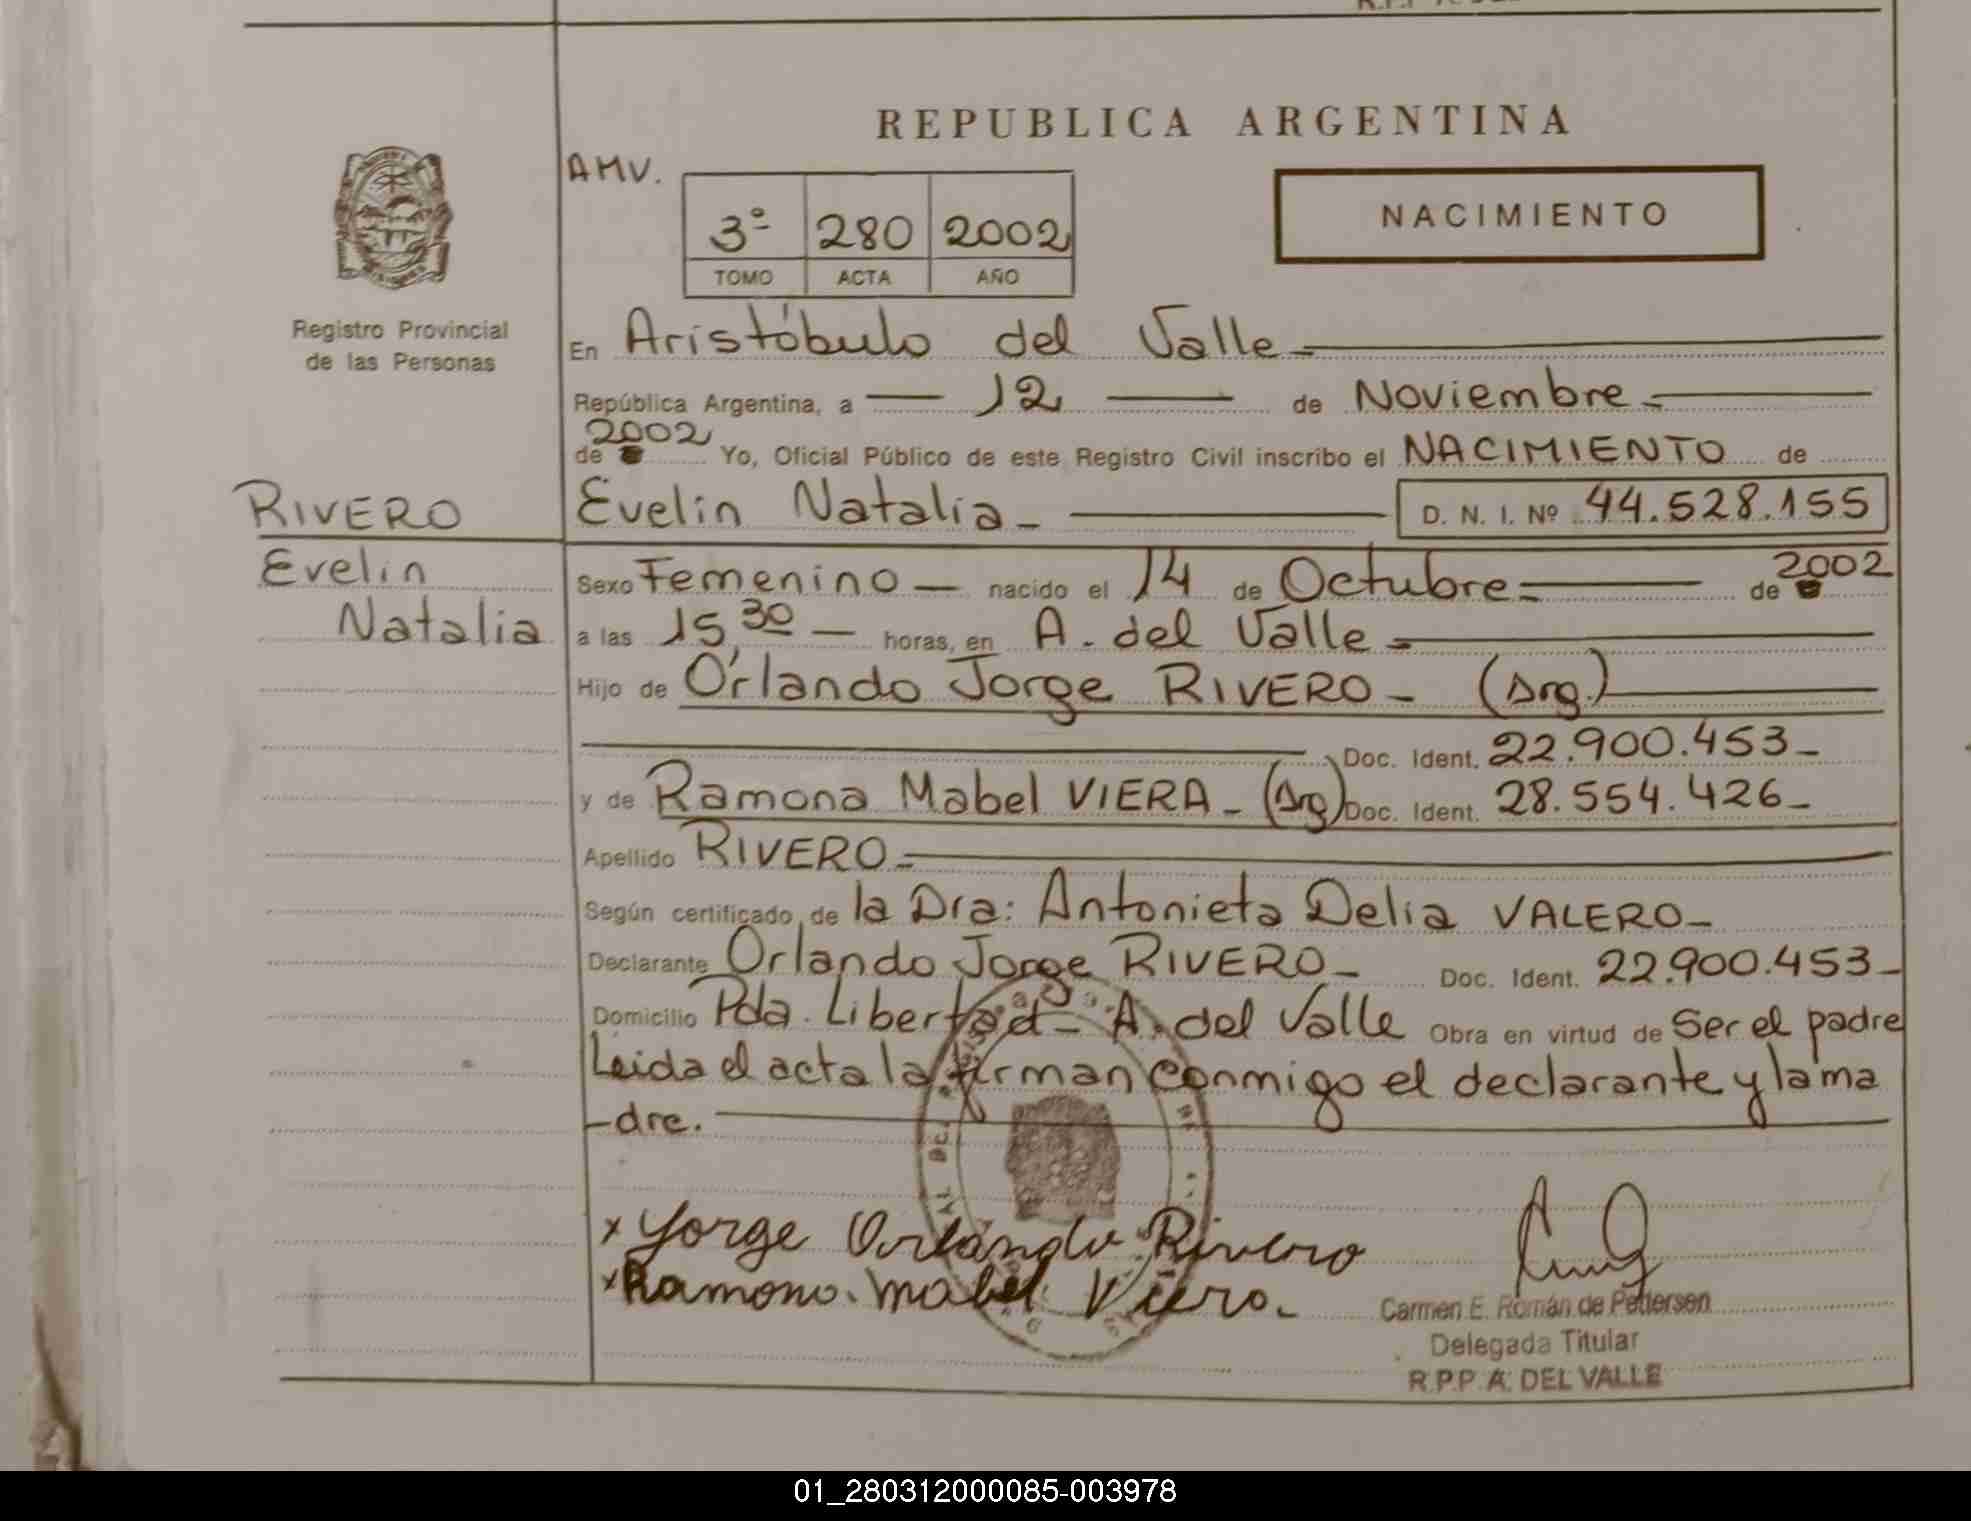 REPUBLICA ARGENTINA
AMV.
NACIMIENTO
3º 280 2002
TOMO ACTA AÑO
Registro Provincial
de las Personas
En Aristóbulo del Valle
República Argentina, a 12 de Noviembre
2002
de Yo, Oficial Público de este Registro Civil inscribo el NACIMIENTO de
RIVERO
Evelin Natalia
Evelin Natalia D. N. I. Nº 44.528.155
Sexo Femenino nacido el 14 de Octubre de 2002
a las 15,30 horas, en A. del Valle
Hijo de Orlando Jorge RIVERO (Arg.)
Doc. Ident. 22.900.453
y de Ramona Mabel VIERA (Arg) Doc. Ident. 28.554.426
Apellido RIVERO
Según certificado de la Dra: Antonieta Delia VALERO
Declarante Orlando Jorge RIVERO Doc. Ident. 22.900.453
Domicilio Pda. Libertad - A. del Valle Obra en virtud de Ser el padre
Leida el acta la firman conmigo el declarante y la ma
-dre.
x Jorge Orlando Rivero
x Ramona Mabel Viera
Carmen E. Román de Pettersen
Delegada Titular
R.P.P. A. DEL VALLE
01_280312000085-003978